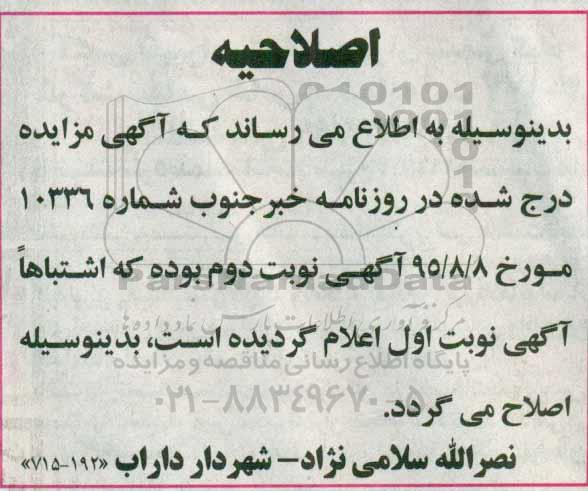 اصلاحیه
بدینوسیله به اطلاع می رساند که آگهی مزایده
درج شده در روزنامه خبرجنوب شماره ۱۰۳۳۶
مورخ ۹۵/۸/۸ آگهی نوبت دوم بوده که اشتباهاً
ParsNamadData
مرکز فرآوری اطلاعات پارس نماد داده ها
آگهی نوبت اول اعلام گردیده است، بدینوسیله
پایگاه اطلاع رسانی مناقصه و مزایده
اصلاح می گردد.
۰۲۱-۸۸۳۴۹۶۷۰-۵
نصرالله سلامی نژاد- شهردار داراب «۱۹۲-۷۱۵»